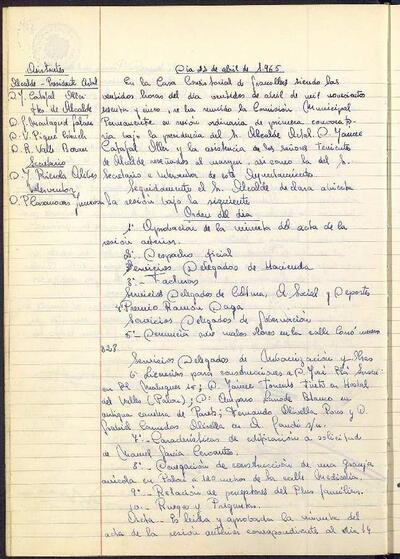 Asistentes
Alcalde - Presidente Actal
D. J. Catafal Oller
Tte. de Alcalde
D.
D. V. Piqué
D. R. Valls
Secretario
D. J.
Interventor
D. P. Casanovas
Día 22 de abril de 1965
En la Casa Consistorial de Granollers siendo las
veintidos horas del día veintidos de abril de mil novecientos
sesenta y cinco, se ha reunido la Comisión Municipal
Permanente en sesión ordinaria de primera convocato
ria bajo la presidencia del Sr. Alcalde Actal. D. Jaime
Catafal Oller y la asistencia de los señores Tenientes
de Alcalde reseñados al margen, así como la del Sr.
Secretario e Interventor de este Ayuntamiento.
Seguidamente el Sr. Alcalde declara abierta
la sesión bajo la siguiente
Orden del día
1º Aprobación de la minuta del acta de la
sesión anterior.
2º- Despacho oficial
Servicios Delegados de Hacienda
3º- Facturas
Servicios Delegados de Cultura, A. Social y Deportes
4º Premio Ramón Daga
Servicios Delegados de Gobernación
5º- Denuncia malos olores en la calle número
328
Servicios Delegados de Urbanización y Obras
6º Licencias para construcciones a D. José
en Pl. Maluquer 15; D. Jaime Torrents en Hostal
del Vallés (Palou); Dª Amparo Blanco en
antigua carretera de Parets; Fernando Olivella y D.
Gabriel Olivella en A. Gaudí s/n.
7º- Características de edificación a solicitud
de Manuel García Cervantes.
8º- Denegación de construcción de una Granja
avícola en Palou a 120 metros de la calle
9º- Relación de perceptores del Plus familiar.
10- Ruegos y Preguntas.
Acta - Es leída y aprobada la minuta del
acta de la sesión anterior correspondiente al día 14